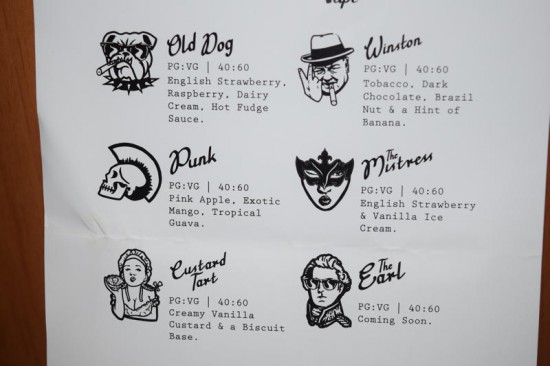 Vape
Old Dog
PG:VG | 40:60
English Strawberry,
Raspberry, Dairy
Cream, Hot Fudge
Sauce.
Winston
PG:VG | 40:60
Tobacco, Dark
Chocolate, Brazil
Nut & a Hint of
Banana.
Punk
PG:VG | 40:60
Pink Apple, Exotic
Mango, Tropical
Guava.
The
Mistress
PG:VG | 40:60
English Strawberry
& Vanilla Ice
Cream.
Custard
Tart
PG:VG | 40:60
Creamy Vanilla
Custard & a Biscuit
Base.
The
Earl
PG:VG | 40:60
Coming Soon.